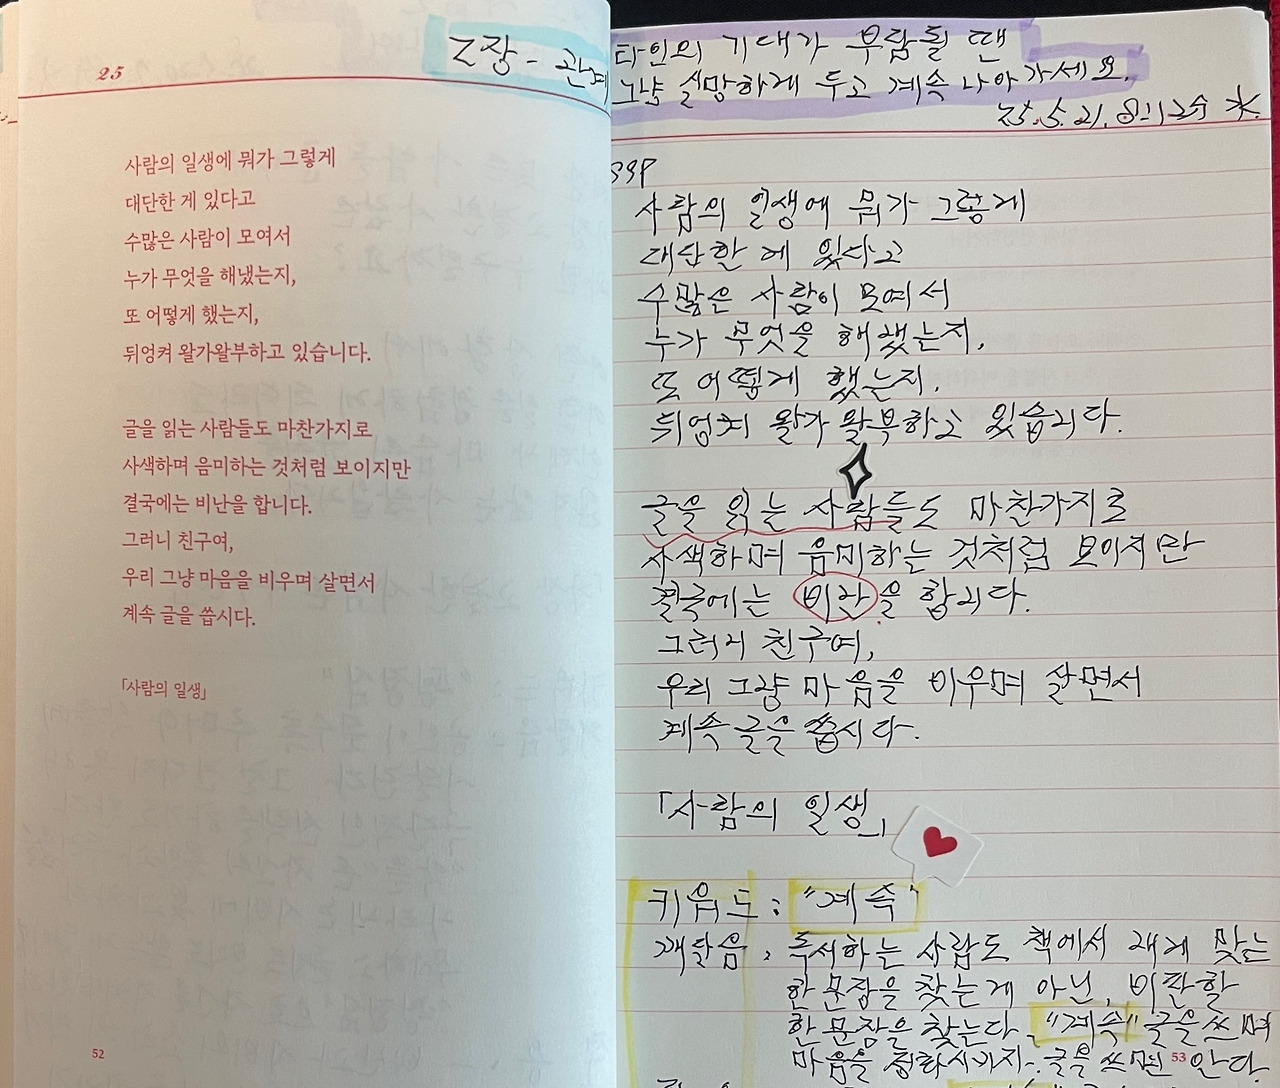 25
2장 - 관계
사람의 일생에 뭐가 그렇게
대단한 게 있다고
수많은 사람이 모여서
누가 무엇을 해냈는지,
또 어떻게 했는지,
뒤엉켜 왈가왈부하고 있습니다.
글을 읽는 사람들도 마찬가지로
사색하며 음미하는 것처럼 보이지만
결국에는 비난을 합니다.
그러니 친구여,
우리 그냥 마음을 비우며 살면서
계속 글을 씁시다.
「사람의 일생」
52
타인의 기대가 부담될 땐
그냥 실망하게 두고 계속 나아가세요.
25.5.21. 水
사람의 일생에 뭐가 그렇게
대단한 게 있다고
수많은 사람이 모여서
누가 무엇을 해냈는지,
또 어떻게 했는지,
뒤엉켜 왈가왈부하고 있습니다.
글을 읽는 사람들도 마찬가지로
사색하며 음미하는 것처럼 보이지만
결국에는 비난을 합니다.
그러니 친구여,
우리 그냥 마음을 비우며 살면서
계속 글을 씁시다.
「사람의 일생」
키워드: "계속"
깨달음: 독서하는 사람도 책에서 내게 맞는
한 문장을 찾는게 아닌, 비판할
한 문장을 찾는다. "계속" 글을 쓰며
마음을 정화시키자. 글을 쓰면 안다.
53